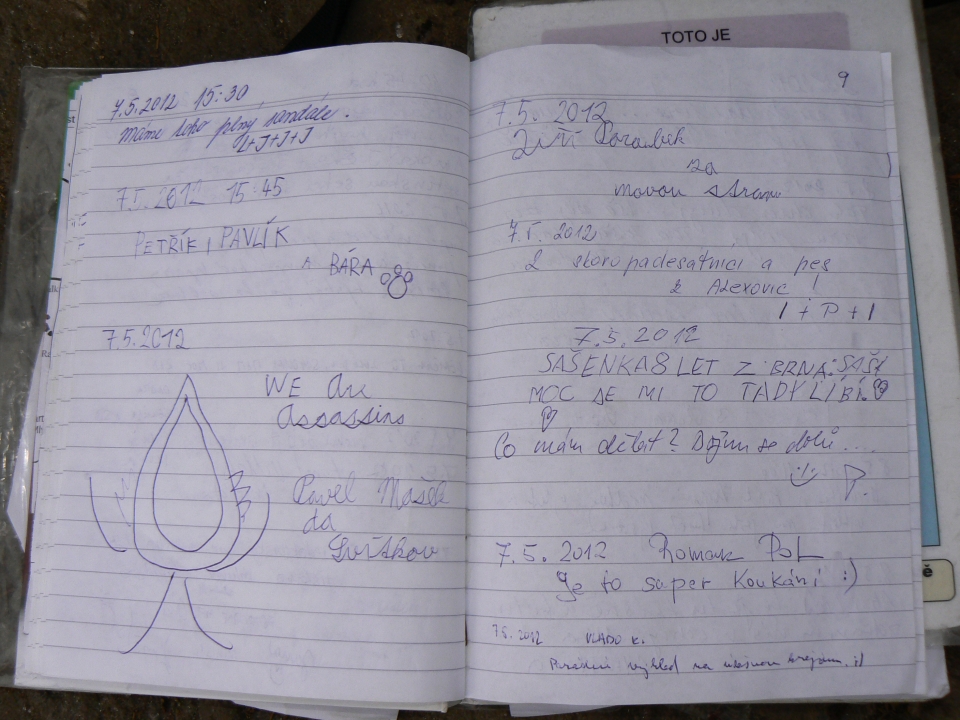 7.5.2012 15:30
Máme toho plný sandále.
L+J+J+J
7.5.2012 15:45
PETŘÍK, PAVLÍK
A BÁRA
7.5.2012
WE Are
Assassins
Pavel
da
TOTO JE
9
7.5. 2012
Jiří Paroubek
za
novou stranu
7.5. 2012
2 skoropadesátníci a pes
z Alexovic!
I + P + I
7.5.2012
SAŠENKA 8 LET Z BRNA:
MOC SE MI TO TADY LÍBÍ.
Co mám dělat? Dojdu se dolů....
:) P.
7.5. 2012 Roman Pol
Je to super koukání :)
7.5. 2012 VLADO K.
výhled na
ě